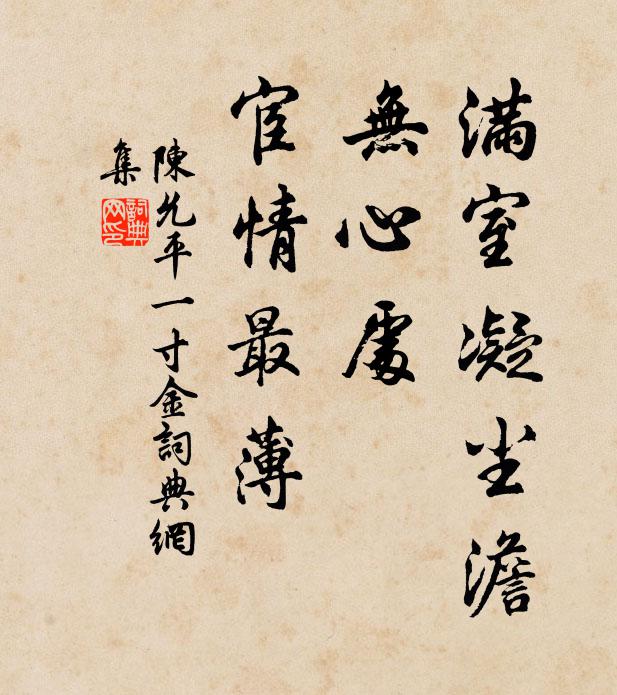 滿室凝尘澹
無心處
宦情最薄
陳允平一寸金詞典網
集
詞典
网印